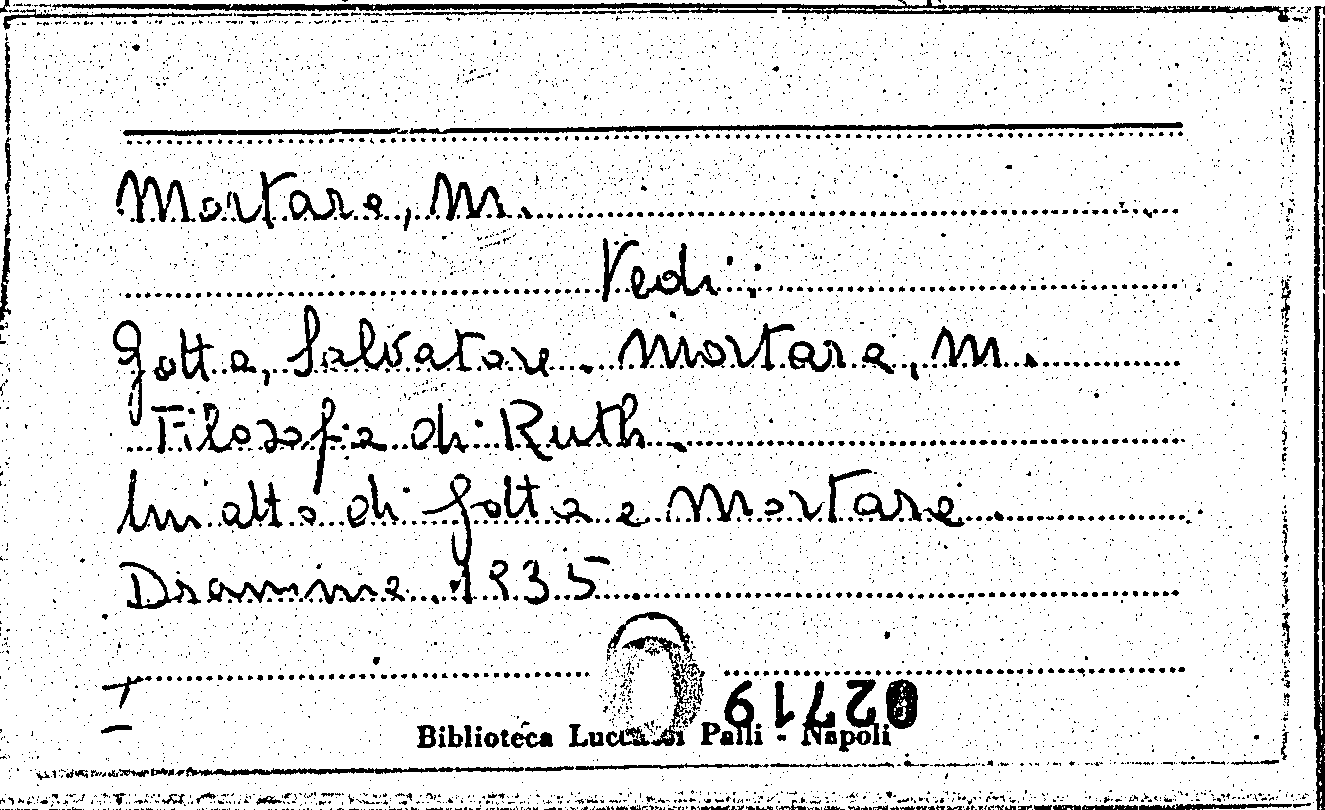 Mortara, M.
Vedi:
Gotta, Salvatore. Mortara, M.
Filosofia di Ruth.
Un atto di Gotta e Mortara.
Dramma. 1935
I
02719
Biblioteca Lucchesi Palli - Napoli